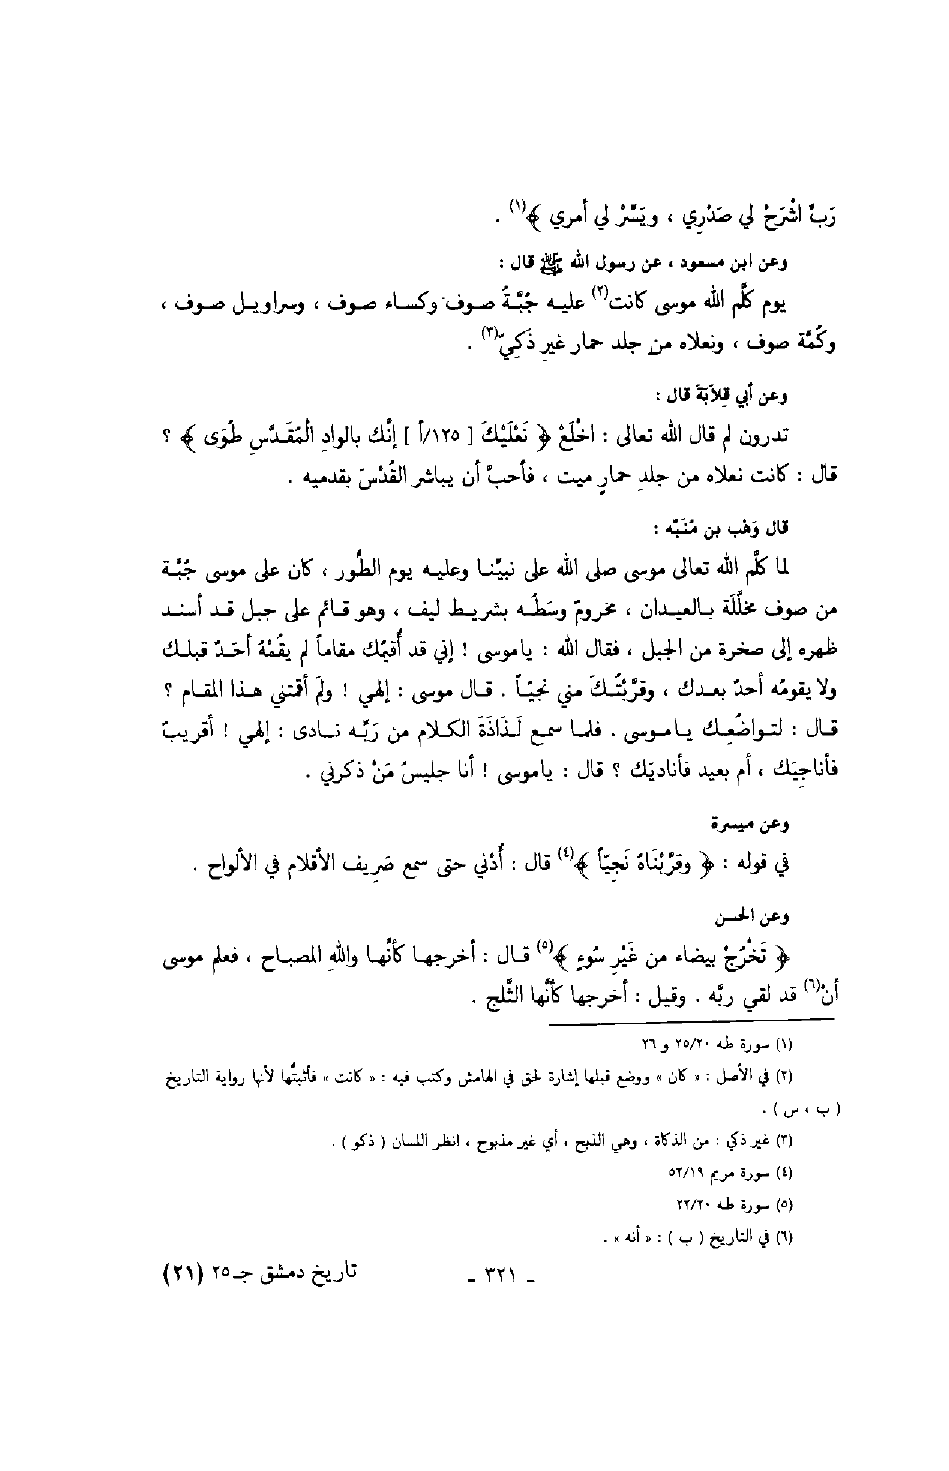 رَبِّ اشْرَحْ لي صَدْرِي ، ويَسِّرْ لي أمري ﴾(١) .
وعن ابن مسعود ، عن رسول الله ﷺ قال :
يوم كلَّم الله موسى كانت(٢) عليه جُبَّةُ صوف وكساء صوف ، وسراويل صوف ،
وكُمَّة صوف ، ونعلاه من جلد حمار غيرِ ذَكِيّ(٣) .
وعن أبي قِلاَبَة قال :
تدرون لم قال الله تعالى : اخْلَعْ ﴿ نَعْلَيْكَ [ ١٢٥/أ ] إنَّك بالوادِ المُقَدَّسِ طُوَى ﴾ ؟
قال : كانت نعلاه من جلدِ حمارٍ ميت ، فأحبَّ أن يباشر القُدْسَ بقدميه .
قال وَهْب بن مُنَبِّه :
لما كلَّم الله تعالى موسى صلى الله على نبيِّنا وعليه يوم الطُّور ، كان على موسى جُبَّة
من صوف مخلَّلة بالعيدان ، محزومٌ وسَطُه بشريط ليف ، وهو قائم على جبل قد أسند
ظهره إلى صخرة من الجبل ، فقال الله : ياموسى ! إني قد أقمتُك مقاماً لم يقُمْهُ أحدٌ قبلك
ولا يقومُه أحدٌ بعدك ، وقرَّبْتُكَ مني نجيّاً . قال موسى : إلهي ! ولِمَ أقمتني هذا المقام ؟
قال : لتواضُعِك ياموسى . فلما سمع لَذَاذَةَ الكلام من رَبِّه نادى : إلهي ! أقريبٌ
فأناجِيَك ، أم بعيد فأناديَك ؟ قال : ياموسى ! أنا جليسُ مَنْ ذكرني .
وعن ميسرة
في قوله : ﴿ وقرَّبْنَاهُ نَجِيّاً ﴾(٤) قال : أُدْني حتى سمع صَرِيف الأقلام في الألواح .
وعن الحسن
﴿ تَخْرُجْ بيضاء من غَيْرِ سُوءٍ ﴾(٥) قال : أخرجها كأنَّها واللهِ المصباح ، فعلم موسى
أنْ(٦) قد لقي ربَّه . وقيل : أخرجها كأنَّها الثَّلج .
(١) سورة طه ٢٥/٢٠ و ٢٦
(٢) في الأصل : « كان » ووضع قبلها إشارة لحق في الهامش وكتب فيه : « كانت » فأثبتُّها لأنها رواية التاريخ
( ب ، س ) .
(٣) غير ذكي : من الذكاة ، وهي الذبح ، أي غير مذبوح ، انظر اللسان ( ذكو ) .
(٤) سورة مريم ٥٢/١٩
(٥) سورة طه ٢٢/٢٠
(٦) في التاريخ ( ب ) : « أنه » .
ـ ٣٢١ ـ تاريخ دمشق جـ ٢٥ (٢١)